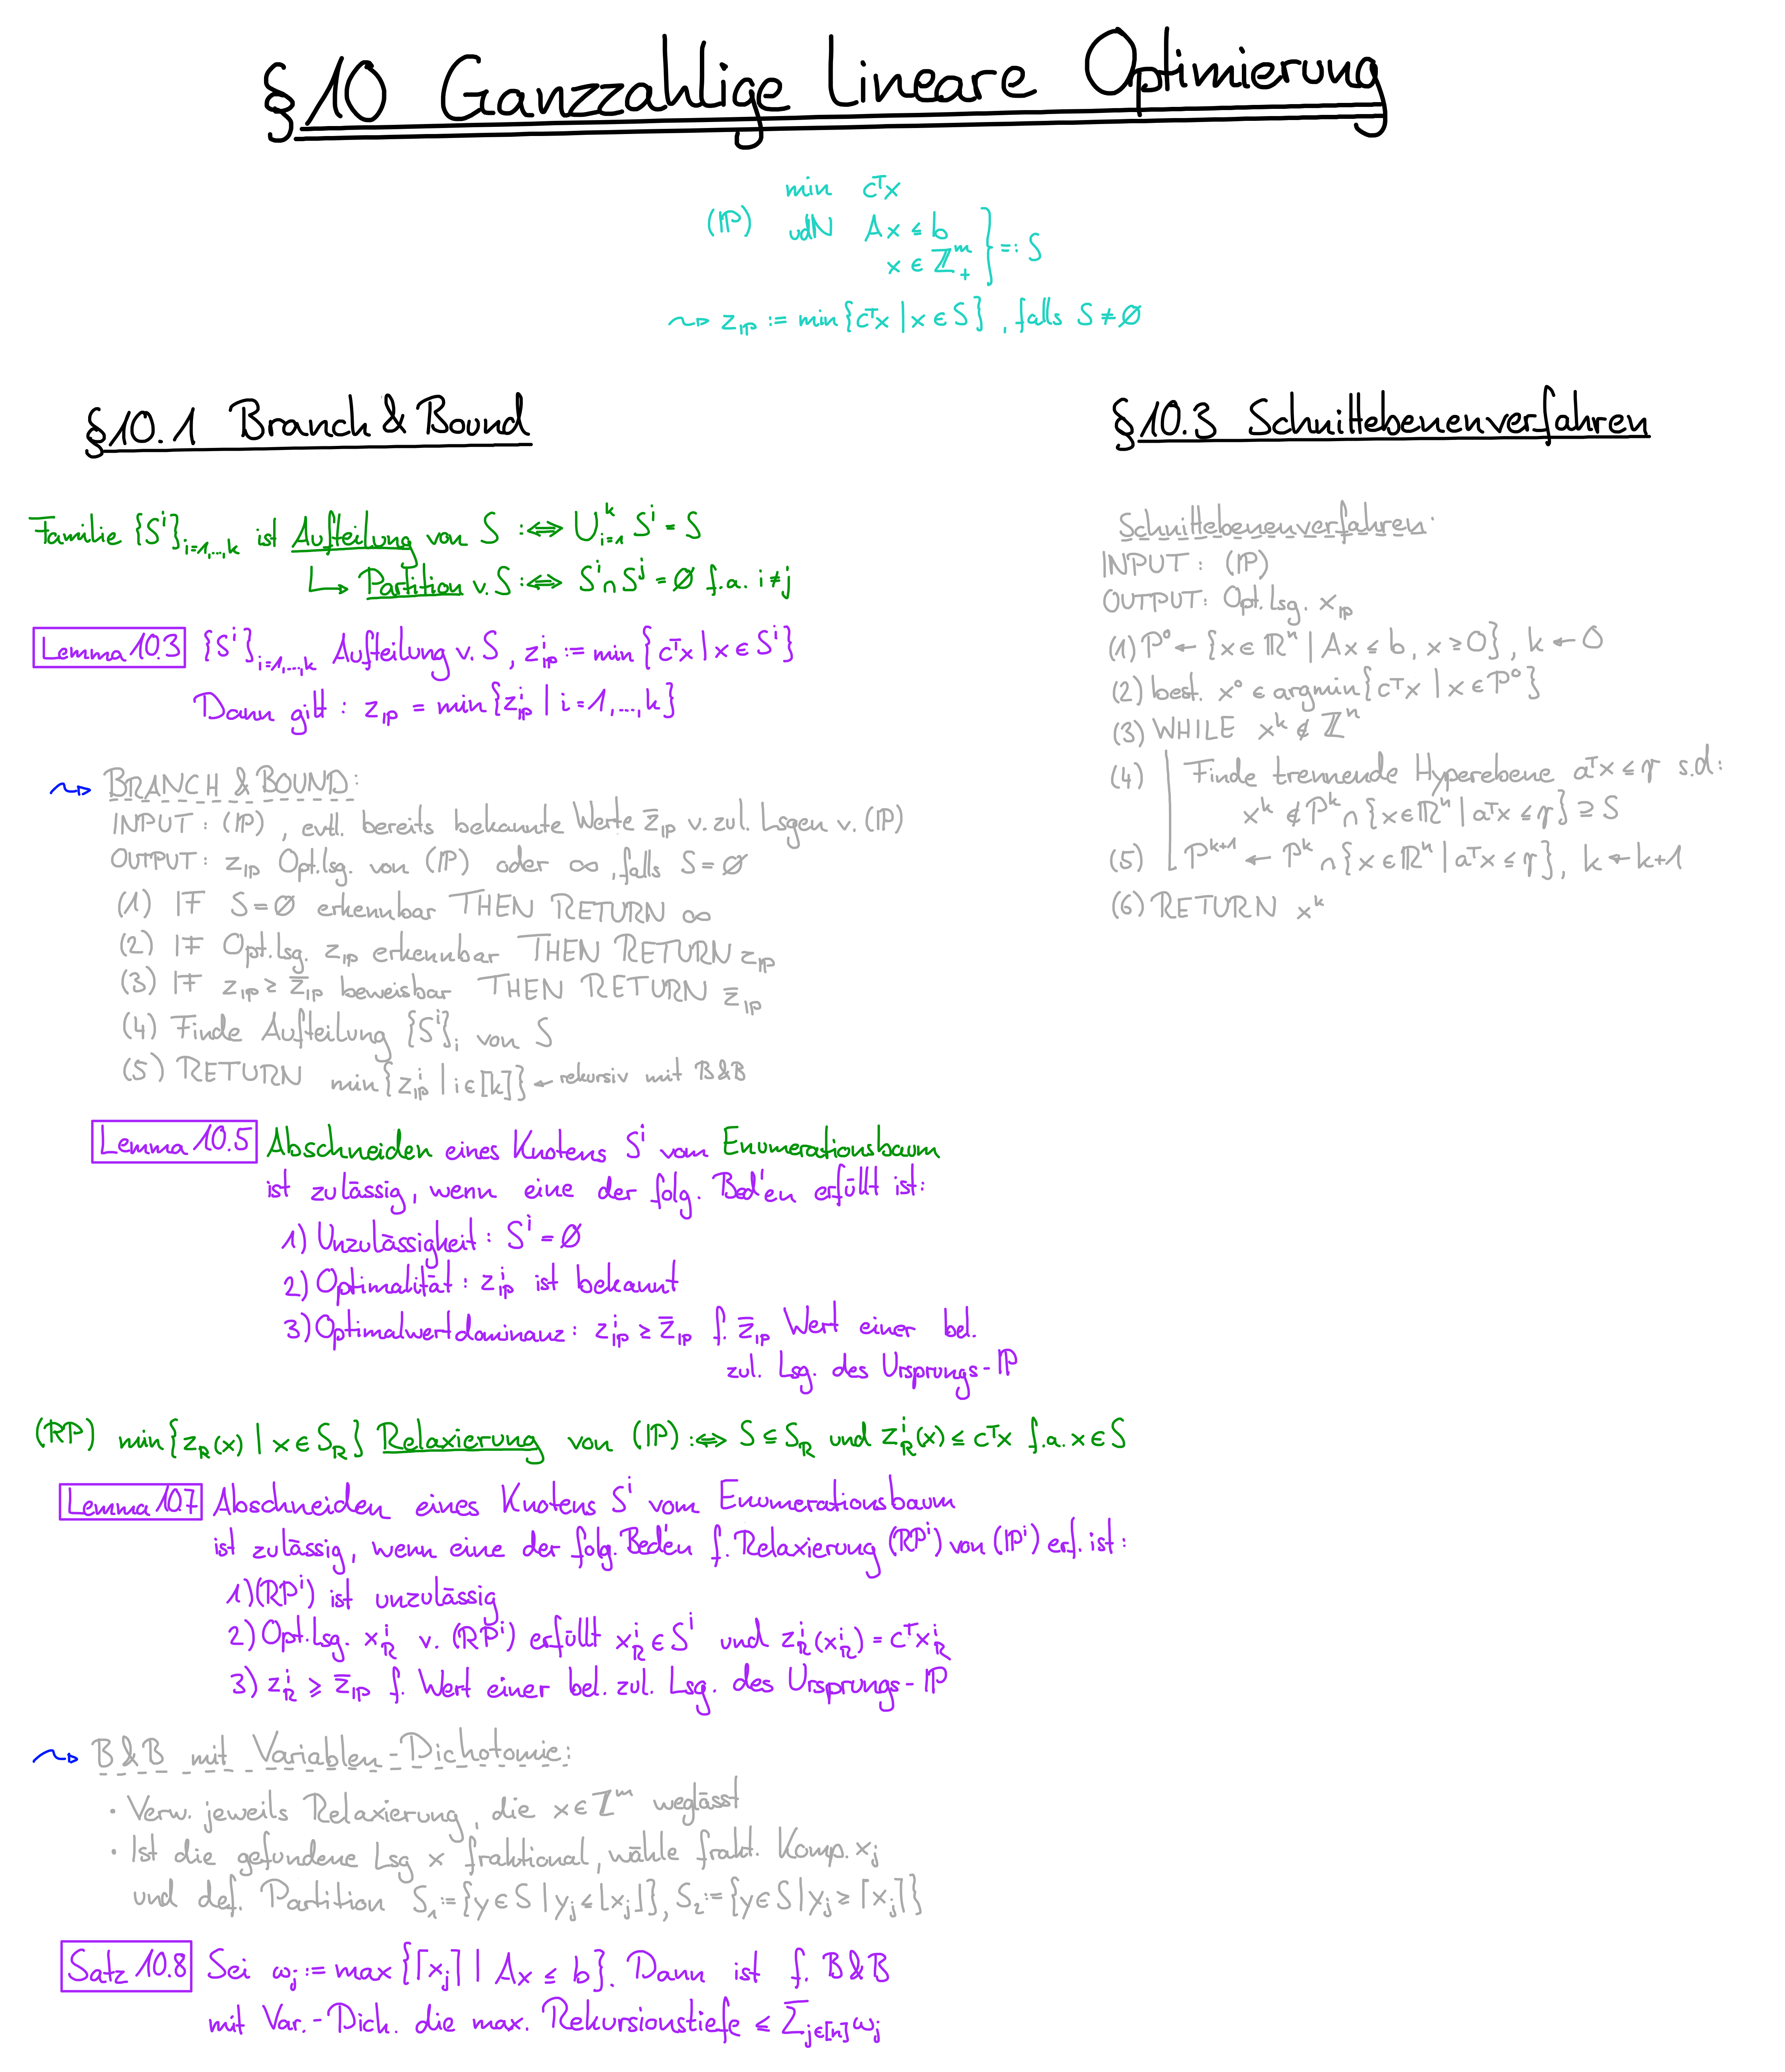 §10 Ganzzahlige Lineare Optimierung
min cᵀx
(IP) udN Ax ≤ b
x ∈ ℤ₊ᵐ } =: S
⤳ z_IP := min{cᵀx | x ∈ S} , falls S ≠ ∅
§10.1 Branch & Bound
Familie {Sⁱ}_{i=1,...,k} ist Aufteilung von S :⇔ ∪_{i=1}^k Sⁱ = S
↳ Partition v. S :⇔ Sⁱ ∩ Sʲ = ∅ f.a. i ≠ j
Lemma 10.3 {Sⁱ}_{i=1,...,k} Aufteilung v. S , z_IP^i := min{cᵀx | x ∈ Sⁱ}
Dann gilt : z_IP = min{z_IP^i | i = 1,...,k}
⤳ BRANCH & BOUND:
INPUT : (IP) , evtl. bereits bekannte Werte z̄_IP v. zul. Lsgen v. (IP)
OUTPUT : z_IP Opt.lsg. von (IP) oder ∞ , falls S = ∅
(1) IF S = ∅ erkennbar THEN RETURN ∞
(2) IF Opt.lsg. z_IP erkennbar THEN RETURN z_IP
(3) IF z_IP ≥ z̄_IP beweisbar THEN RETURN z̄_IP
(4) Finde Aufteilung {Sⁱ}_i von S
(5) RETURN min{z_IP^i | i ∈ [k]} ← rekursiv mit B&B
Lemma 10.5 Abschneiden eines Knotens Sⁱ vom Enumerationsbaum
ist zulässig, wenn eine der folg. Bed'en erfüllt ist:
1) Unzulässigkeit : Sⁱ = ∅
2) Optimalität : z_IP^i ist bekannt
3) Optimalwertdominanz : z_IP^i ≥ z̄_IP f. z̄_IP Wert einer bel.
zul. Lsg. des Ursprungs-IP
(RP) min{z_R(x) | x ∈ S_R} Relaxierung von (IP) :⇔ S ⊆ S_R und z_R^i(x) ≤ cᵀx f.a. x ∈ S
Lemma 10.7 Abschneiden eines Knotens Sⁱ vom Enumerationsbaum
ist zulässig, wenn eine der folg. Bed'en f. Relaxierung (RPⁱ) von (IPⁱ) erf. ist :
1) (RPⁱ) ist unzulässig
2) Opt.Lsg. x_R^i v. (RPⁱ) erfüllt x_R^i ∈ Sⁱ und z_R^i(x_R^i) = cᵀx_R^i
3) z_R^i ≥ z̄_IP f. Wert einer bel. zul. Lsg. des Ursprungs-IP
⤳ B&B mit Variablen-Dichotomie:
• Verw. jeweils Relaxierung, die x ∈ ℤᵐ weglässt
• Ist die gefundene Lsg x fraktional, wähle frakt. Komp. x_j
und def. Partition S₁ := {y ∈ S | y_j ≤ ⌊x_j⌋}, S₂ := {y ∈ S | y_j ≥ ⌈x_j⌉}
Satz 10.8 Sei ω_j := max{⌈x_j⌉ | Ax ≤ b}. Dann ist f. B&B
mit Var.-Dich. die max. Rekursionstiefe ≤ Σ_{j∈[n]} ω_j
§10.3 Schnittebenenverfahren
Schnittebenenverfahren:
INPUT : (IP)
OUTPUT : Opt.Lsg. x_IP
(1) P⁰ ← {x ∈ ℝⁿ | Ax ≤ b , x ≥ 0} , k ← 0
(2) best. x⁰ ∈ argmin{cᵀx | x ∈ P⁰}
(3) WHILE xᵏ ∉ ℤⁿ
(4) Finde trennende Hyperebene aᵀx ≤ γ s.d:
xᵏ ∉ Pᵏ ∩ {x ∈ ℝⁿ | aᵀx ≤ γ} ⊇ S
(5) Pᵏ⁺¹ ← Pᵏ ∩ {x ∈ ℝⁿ | aᵀx ≤ γ}, k ← k+1
(6) RETURN xᵏ